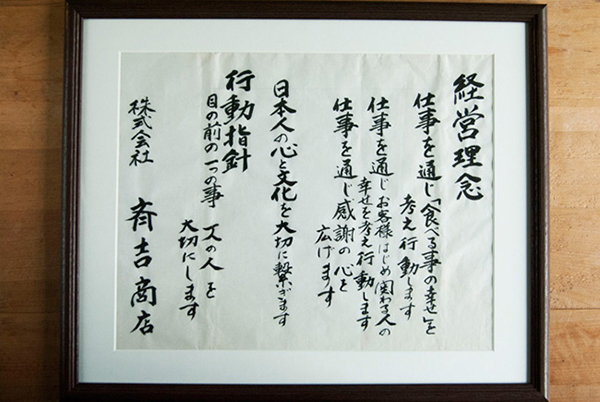 経営理念
仕事を通じ「食べる事の幸せ」を
考え行動します
仕事を通じお客様はじめ関わる人の
幸せを考え行動します
仕事を通じ感謝の心を
広げます
日本人の心と文化を大切に繋ぎます
行動指針
目の前の一つの事 一人の人を
大切にします
株式会社 斉吉商店